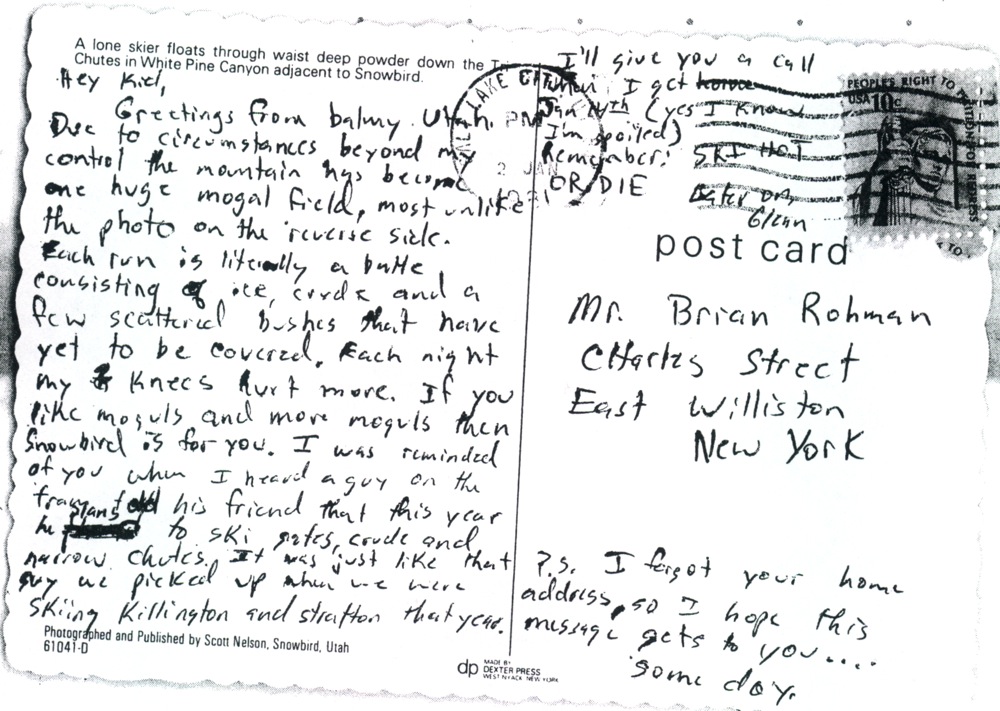 A lone skier floats through waist deep powder down the
Chutes in White Pine Canyon adjacent to Snowbird.
Hey Kid,
Greetings from balmy Utah.
Due to circumstances beyond my
control the mountain has become
one huge mogal field, most unlike
the photo on the reverse side.
Each run is literally a battle,
consisting of ice, crude and a
few scattered bushes that have
yet to be covered. Each night
my knees hurt more. If you
like moguls and more moguls then
Snowbird is for you. I was reminded
of you when I heard a guy on the
tram told his friend that this year
he plans to ski gates, crude and
narrow chutes. It was just like that
guy we picked up when we were
skiing Killington and stratton that year.
Photographed and Published by Scott Nelson, Snowbird, Utah
61041-D
I'll give you a call
when I get home
Jan 14th (yes I know
I'm spoiled)
Remember: SKI HOT
OR DIE
Later on,
Glenn
LAKE CITY
PM
2 JAN
PEOPLE'S RIGHT TO
USA 10c
post card
Mr. Brian Rohman
CHarles Street
East Williston
New York
P.S. I forgot your home
address, so I hope this
message gets to you....
some day.
dp MADE BY
DEXTER PRESS
WEST NYACK, NEW YORK